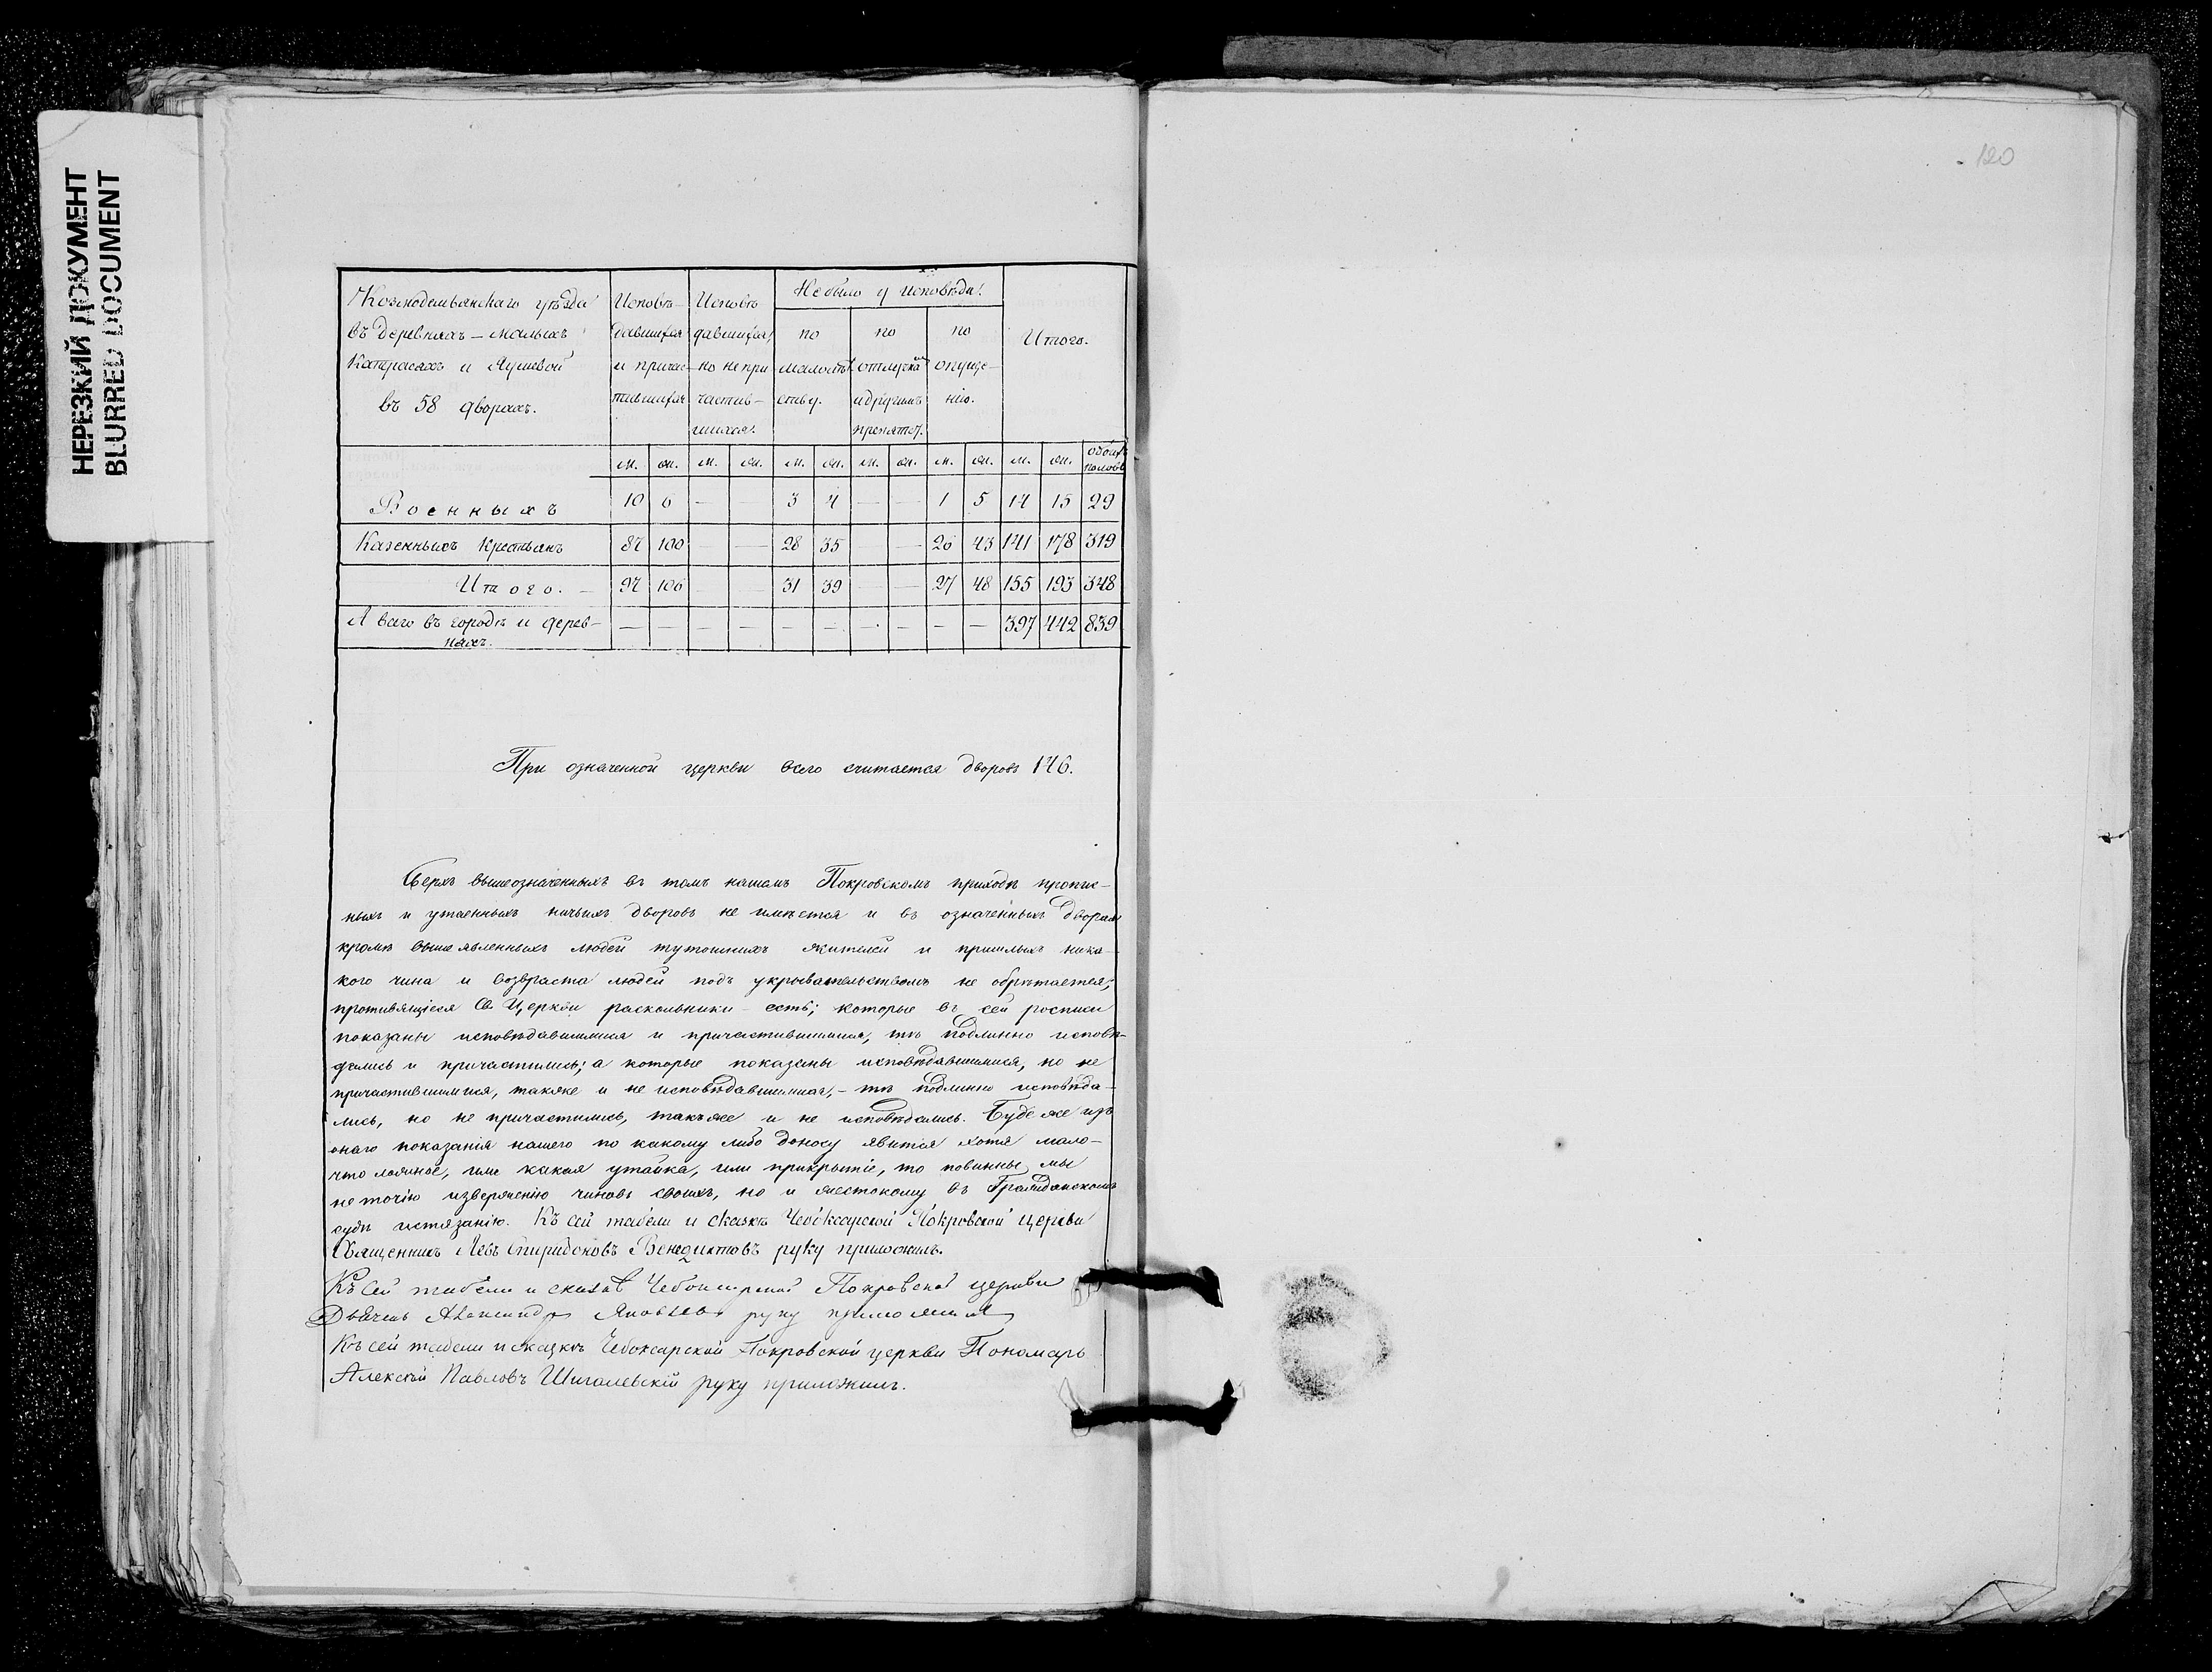 НЕРЕЗКИЙ ДОКУМЕНТ
BLURRED DOCUMENT
120
Козмодемьянскаго уѣзда
въ деревняхъ – малыхъ
Катрасяхъ и Яушевой
въ 58 дворахъ.
Исповѣ-
давшихся
и причас-
тившихся
Исповѣ
давшихся,
но не при
частив-
шихся.
Не было у исповѣди.
по
малолѣт
ству.
по
отлучкамъ
и другимъ
препятст.
по
опуще-
нію.
Итого.
м. жп. м. жп. м. жп. м. жп. м. жп. м. жп. обоихъ половъ
Военныхъ 10 6 — — 3 4 — — 1 5 14 15 29
Казенныхъ крестьянъ 87 100 — — 28 35 — — 26 43 141 178 319
Итого. — 97 106 — — 31 39 — — 27 48 155 193 348
А всего въ городѣ и дерев-
няхъ. — — — — — — — — — — 397 442 839
При означенной церкви всего считается дворовъ 146.
Сверхъ вышеозначенныхъ въ томъ нашемъ Покровскомъ приходѣ пропис-
ныхъ и утаенныхъ ничьихъ дворовъ не имѣется и въ означенныхъ дворахъ
кромѣ выше явленныхъ людей тутошнихъ жителей и пришлыхъ ника-
кого чина и возвраста людей подъ укрывательствомъ не обрѣтается;
противящіеся Св. Церкви раскольники – есть; которые въ сей росписи
показаны исповѣдавшимися и причастившимися, тѣ подлинно исповѣ-
дались и причастились; а которые показаны исповѣдавшимися, но не
причастившимися, также и не исповѣдавшимися, – тѣ подлинно исповѣда-
лись, но не причастились, такъже и не исповѣдались. Буде же изъ
онаго показанія нашего по какому либо доносу явится хотя мало-
что ложное, или какая утайка, или прикрытіе, то повинны мы
не точію изверженію чиновъ своихъ, но и жестокому въ Гражданскомъ
судѣ истязанію. Къ сей табели и сказкѣ Чебоксарской Покровской церкви
Священникъ Левъ Спиридоновъ Венедиктовъ руку приложилъ.
Къ сей табели и сказкѣ Чебоксарской Покровской церкви
Дьячекъ Александръ Яковлевъ руку приложилъ
Къ сей табели и сказкѣ Чебоксарской Покровской церкви Пономарь
Алексѣй Павловъ Шигалевскій руку приложилъ.